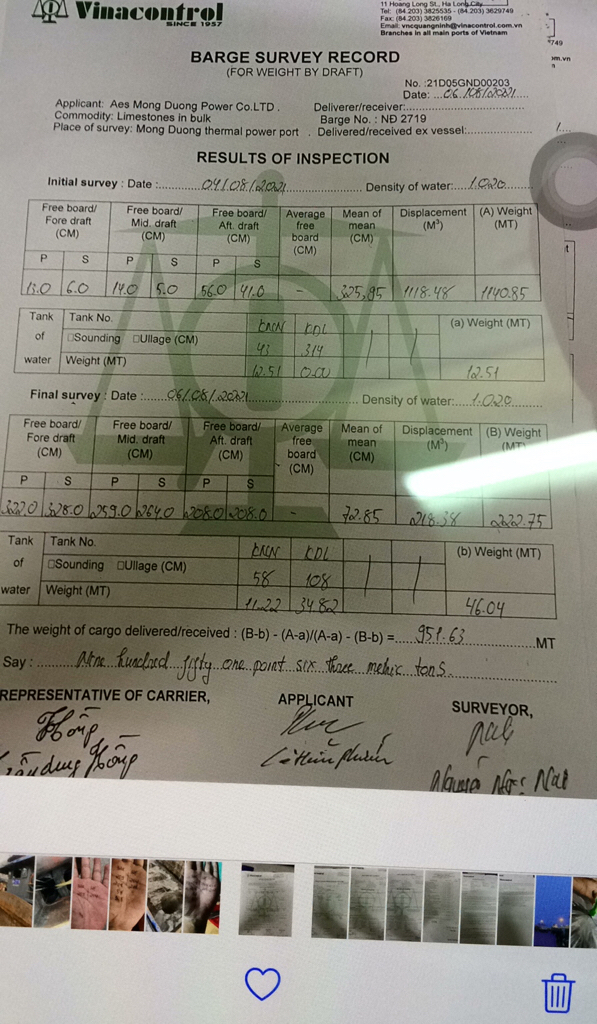 Vinacontrol
SINCE 1957
11 Hoang Long St., Ha Long City
Tel: (84.203) 3825535 - (84.203) 3629749
Fax: (84.203) 3826169
Email: vncquangninh@vinacontrol.com.vn
Branches in all main ports of Vietnam
749
om.vn
BARGE SURVEY RECORD
(FOR WEIGHT BY DRAFT)
No. :21D05GND00203
Date: ...06/08/2021
Applicant: Aes Mong Duong Power Co.LTD . Deliverer/receiver:
Commodity: Limestones in bulk Barge No. : NĐ 2719
Place of survey: Mong Duong thermal power port . Delivered/received ex vessel:
RESULTS OF INSPECTION
Initial survey : Date : 04/08/2021 Density of water: 1.020
Free board/ Fore draft (CM) Free board/ Mid. draft (CM) Free board/ Aft. draft (CM) Average free board (CM) Mean of mean (CM) Displacement (M³) (A) Weight (MT)
P S P S P S
13.0 6.0 14.0 5.0 56.0 41.0 - 325,95 1118.48 1140.85
Tank of water Tank No. KMN KDL (a) Weight (MT)
□Sounding □Ullage (CM) 43 314
Weight (MT) 12.51 0.00 12.51
Final survey : Date : 06/08/2021 Density of water: 1.020
Free board/ Fore draft (CM) Free board/ Mid. draft (CM) Free board/ Aft. draft (CM) Average free board (CM) Mean of mean (CM) Displacement (M³) (B) Weight (MT)
P S P S P S
322.0 328.0 259.0 264.0 208.0 208.0 - 72.85 218.38 222.75
Tank of water Tank No. KMN KDL (b) Weight (MT)
□Sounding □Ullage (CM) 58 108
Weight (MT) 11.22 34.82 46.04
The weight of cargo delivered/received : (B-b) - (A-a)/(A-a) - (B-b) = 951.63 MT
Say : Nine hundred fifty one point six three metric tons.
REPRESENTATIVE OF CARRIER, APPLICANT SURVEYOR,
Hồng
Hồng